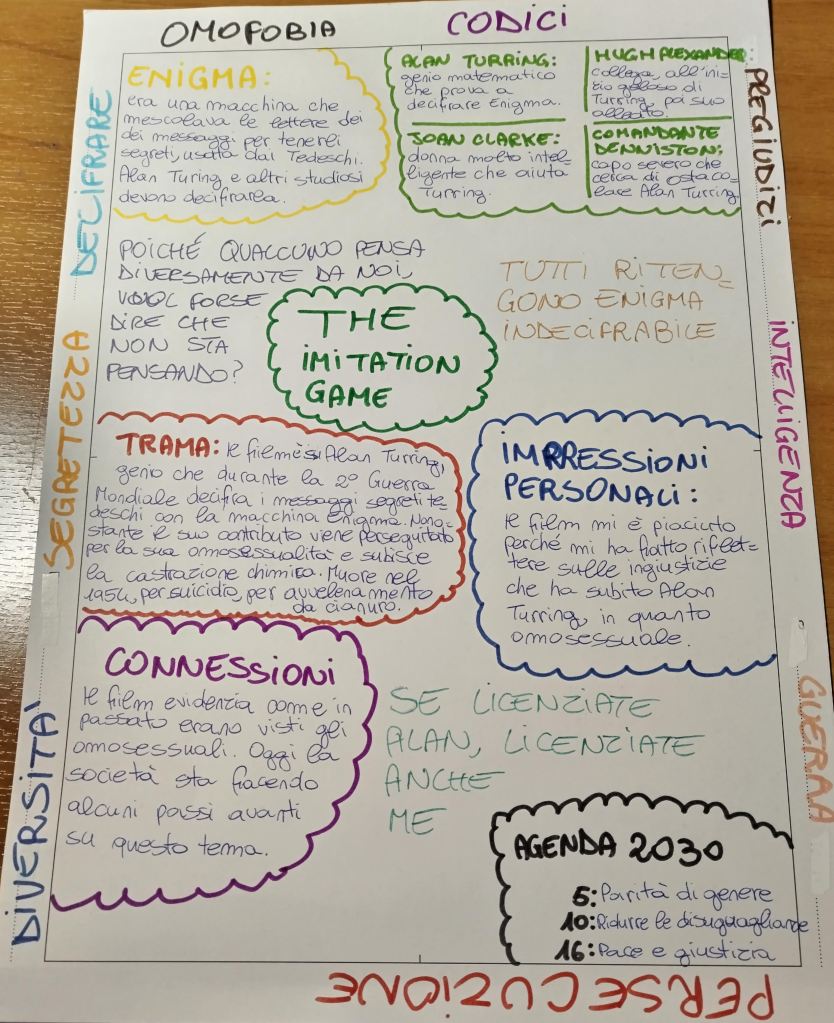 OMOFOBIA
CODICI
PREGIUDIZI
INTELLIGENZA
GUERAA
PERSECUZIONE
DIVERSITA'
SEGRETEZZA
DECIFRARE
ENIGMA:
era una macchina che
mescolava le lettere dei
dei messaggi per tenerli
segreti, usata dai Tedeschi.
Alan Turing e altri studiosi
devono decifrarla.
ALAN TURRING:
genio matematico
che prova a
decifrare Enigma.
HUGH ALEXANDER:
collega, all'ini=
zio geloso di
Turring, poi suo
alleato.
JOAN CLARKE:
donna molto intel=
ligente che aiuta
Turring.
COMANDANTE
DENNISTON:
capo severo che
cerca di ostaco=
lare Alan Turring
POICHÉ QUALCUNO PENSA
DIVERSAMENTE DA NOI,
VUOL FORSE
DIRE CHE
NON STA
PENSANDO?
THE
IMITATION
GAME
TUTTI RITEN=
GONO ENIGMA
INDECIFRABILE
TRAMA: Il film è su Alan Turring,
genio che durante la 2° Guerra
Mondiale decifra i messaggi segreti te=
deschi con la macchina Enigma. Nono=
stante il suo contributo viene perseguitato
per la sua omosessualità e subisce
la castrazione chimica. Muore nel
1954, per suicidio, per avvelenamento
da cianuro.
IMPRESSIONI
PERSONALI:
Il film mi è piaciuto
perché mi ha fatto riflet=
tere sulle ingiustizie
che ha subito Alan
Turring, in quanto
omosessuale.
CONNESSIONI
Il film evidenzia come in
passato erano visti gli
omosessuali. Oggi la
società sta facendo
alcuni passi avanti
su questo tema.
SE LICENZIATE
ALAN, LICENZIATE
ANCHE
ME
AGENDA 2030
5: Parità di genere
10: Ridurre le disuguaglianze
16: Pace e giustizia